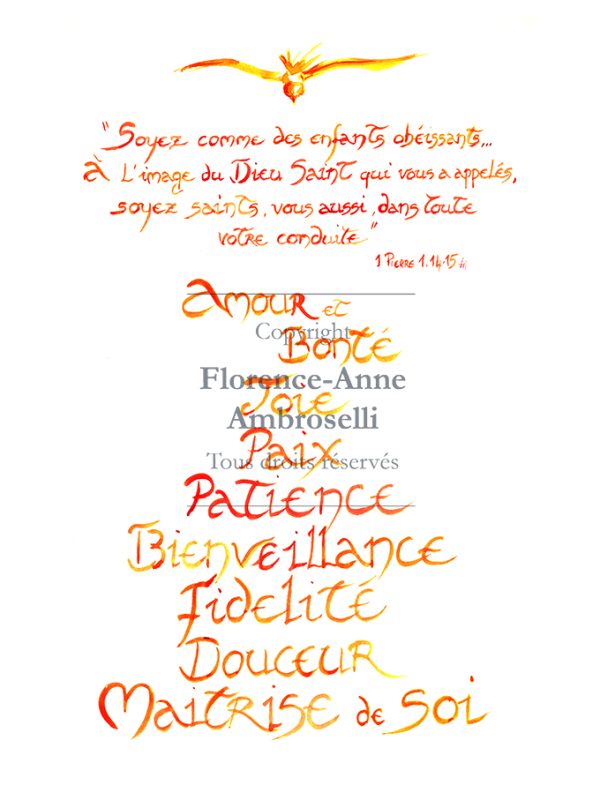 "Soyez comme des enfants obéissants...
à l'image du Dieu Saint qui vous a appelés,
soyez saints, vous aussi, dans toute
votre conduite"
1 Pierre 1.14.15
Amour et
Copyright
Bonté
Florence-Anne
Joie
Ambroselli
Paix
Tous droits réservés
Patience
Bienveillance
Fidelité
Douceur
Maitrise de Soi